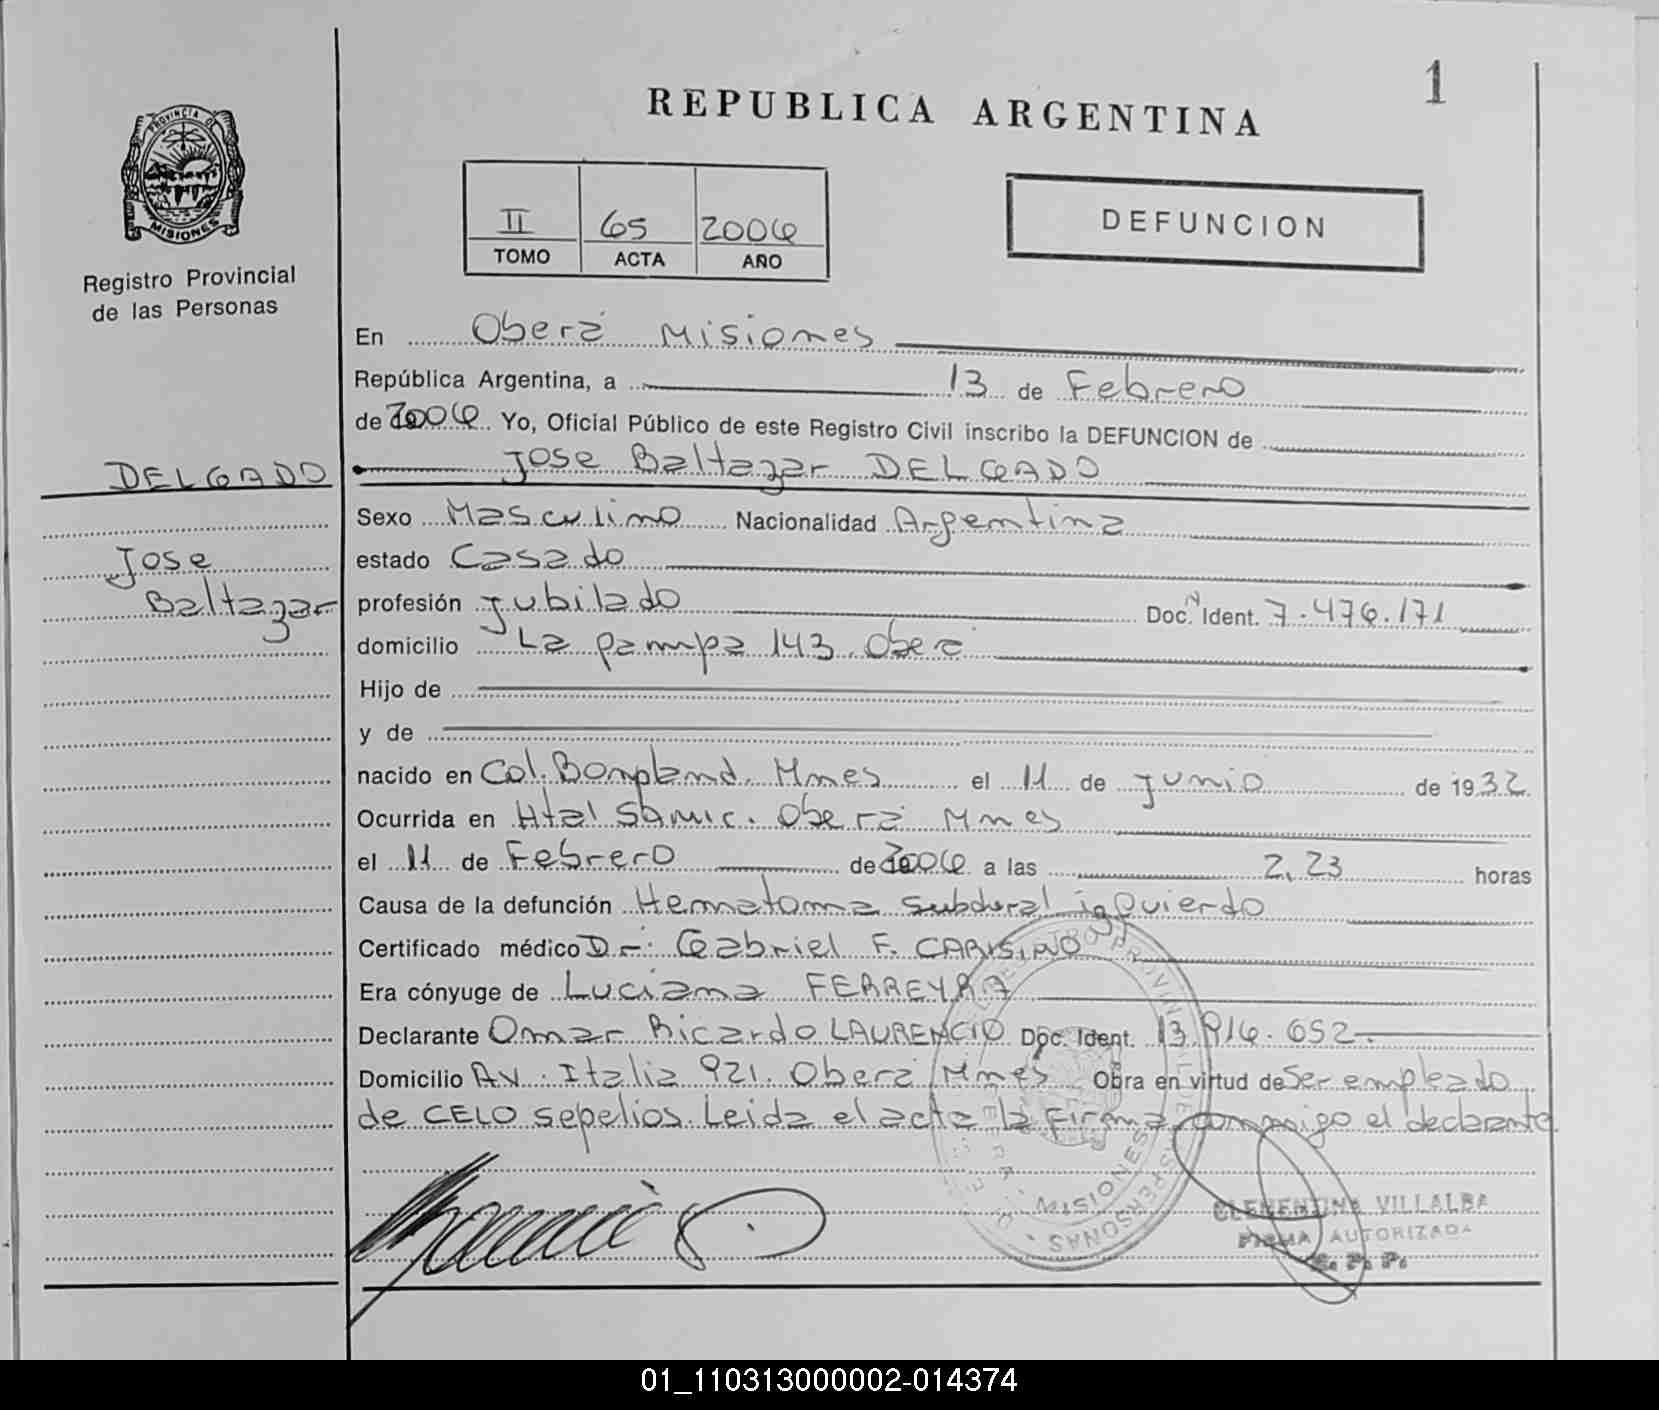 1
REPUBLICA ARGENTINA
PROVINCIA DE
MISIONES
Registro Provincial
de las Personas
II 65 2006
TOMO ACTA AÑO
DEFUNCION
En Oberá Misiones
República Argentina, a 13 de Febrero
de 2006 Yo, Oficial Público de este Registro Civil inscribo la DEFUNCION de
DELGADO
Jose Baltazar DELGADO
Sexo Masculino Nacionalidad Argentina
estado Casado
Jose
Baltazar
profesión jubilado Doc. N Ident. 7.476.171
domicilio La pampa 143. Oberá
Hijo de
y de
nacido en Col. Bonpland. Mnes el 11 de junio de 1932
Ocurrida en Htal Samic. Oberá Mnes
el 11 de Febrero de 2006 a las 2,23 horas
Causa de la defunción Hematoma subdural izquierdo
Certificado médico Dr: Gabriel F. CARISINO
Era cónyuge de Luciana FERREYRA
Declarante Omar Ricardo LAURENCIO Doc. Ident. 13.916.652.
Domicilio Av. Italia 921. Oberá Mnes Obra en virtud de Ser empleado
de CELO sepelios. Leida el acta la firma conmigo el declarante
MISIONES
CLEMENTINA VILLALBA
FIRMA AUTORIZADA
01_110313000002-014374